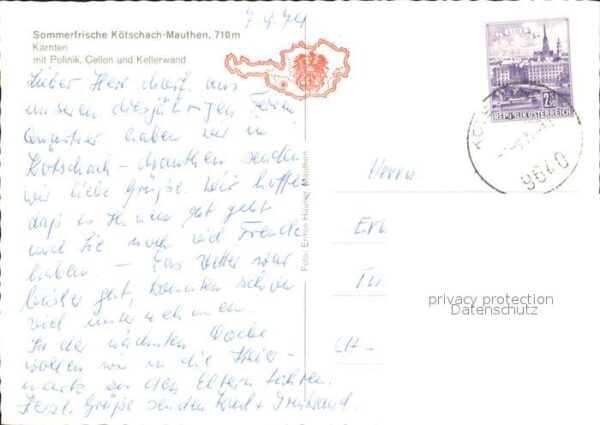 7.9.74
Sommerfrische Kötschach-Mauthen, 710 m
Kärnten
mit Polinik, Cellon und Kellerwand
Lieber Herr aus
unseren diesjährigen Ferien
Quartier haben wir in
Kötschach-Mauthen senden
wir liebe Grüße. Wir hoffen
daß es Ihnen gut geht
und Sie noch viel Freude
haben. – Das Wetter war
bisher gut, konnten schon
viel unternehmen.
In der nächsten Woche
wollen wir in die Steier-
mark zu den Eltern fahren.
Herzl. Grüße senden Karl +
Foto: Erwin Hauser, Mauthen
REPUBLIK ÖSTERREICH
9640
Herrn
CH-
privacy protection
Datenschutz